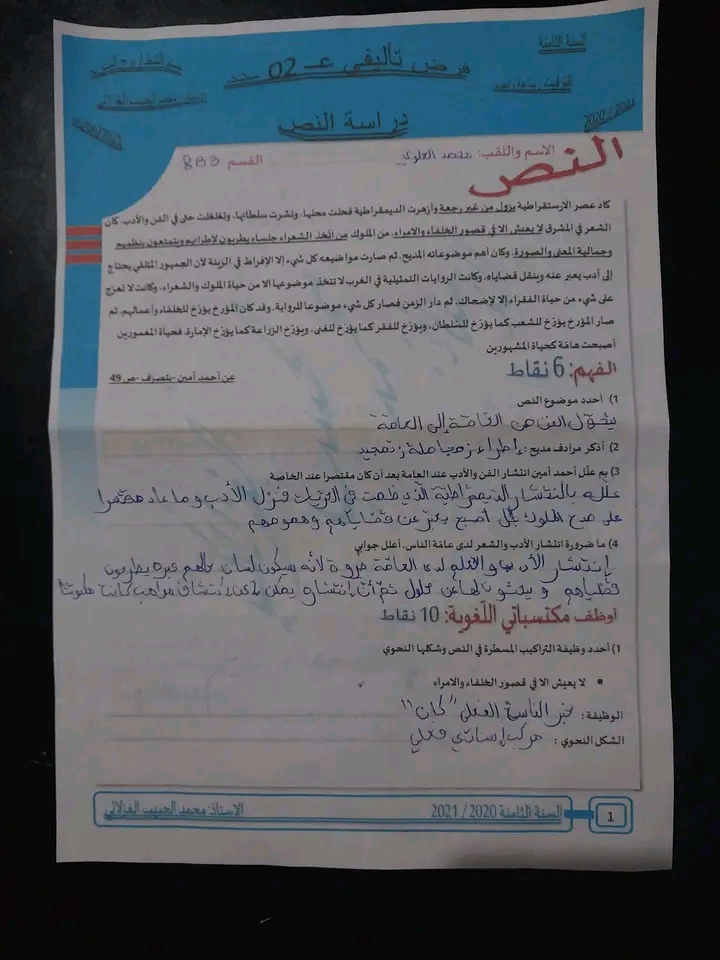 السنة الثامنة
فرض تأليفي عـ 02 ـدد
التوقيت: ساعة واحدة
دراسة النص
2020/2021
الاسم واللقب: محمد العلوي القسم 8B3
النص
كاد عصر الارستقراطية يزول من غير رجعة وأزهرت الديمقراطية فحلت محلها، ونشرت سلطانها، وتغلغلت حتى في الفن والأدب. كان
الشعر في المشرق لا يعش الا في قصور الخلفاء والامراء. من الملوك من اتخذ الشعراء جلساء يطربون لاطرابهم ويتمتعون بنظمهم
وجمالية المعنى والصورة. وكان أهم موضوعاته المديح. ثم صارت مواضيعه كل شيء إلا الإفراط في الزينة لأن الجمهور المتلقي يحتاج
إلى أدب يعبر عنه وينقل قضاياه. وكانت الروايات التمثيلية في الغرب لا تتخذ موضوعها الا من حياة الملوك والشعراء، وكانت لا تعرّج
على شيء من حياة الفقراء إلا لإضحاك. ثم دار الزمن فصار كل شيء موضوعا للرواية. وقد كان المؤرخ يؤرّخ للخلفاء وأعمالهم. ثم
صار المؤرخ يؤرخ للشعب كما يؤرّخ للسّلطان، ويؤرّخ للفقر كما يؤرّخ للغنى، ويؤرّخ الزراعة كما يؤرّخ الإمارة. فحياة المغمورين
أصبحت هامّة كحياة المشهورين
عن أحمد أمين -بتصرف- ص 49
الفهم: 6 نقاط
1) أحدد موضوع النص
تحوّل الفن من الخاصّة إلى العامّة
2) أذكر مرادف مديح: إطراء، مجاملة، تمجيد
3) بم علّل أحمد أمين انتشار الفن والأدب عند العامة بعد أن كان مقتصرا عند الخاصة
علّله بانتشار الديمقراطية الّتي حلّت في فنزل الأدب وما عاد مقتصرا
على مدح الملوك بل أصبح يعبّر عن قضاياهم وهمومهم
4) ما ضرورة انتشار الأدب والشعر لدى عامّة الناس. أعلل جوابي
إنتشار الأدب لدى العامّة ضرورة لأنه سيكون لسان حالهم فيه يطرحون
قضاياهم و يبحثون لها عن حلول ثمّ أنّ إنتشاره يمكن من اكتشاف مواهب كانت
أوظف مكتسباتي اللّغوية: 10 نقاط
1) أحدد وظيفة التراكيب المسطرة في النص وشكلها النحوي
• لا يعيش الا في قصور الخلفاء والامراء
الوظيفة: خبر الناسخ الفعلي "كان"
الشكل النحوي: مركب إسنادي فعلي
1
السنة الثامنة 2020/ 2021
الاستاذ: محمد الحبيب الغزلاني